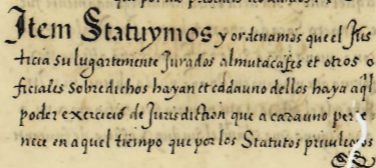 Item Statuymos y ordenamos que el Jus
ticia su lugartemente Jurados almutaçafes et otros o
ficiales sobredichos hayan et cadauno dellos haya aq̃l
poder exercicio de Jurisdiction que a cadauno perte
nece en aquel tiempo que por los Statutos priuilegios